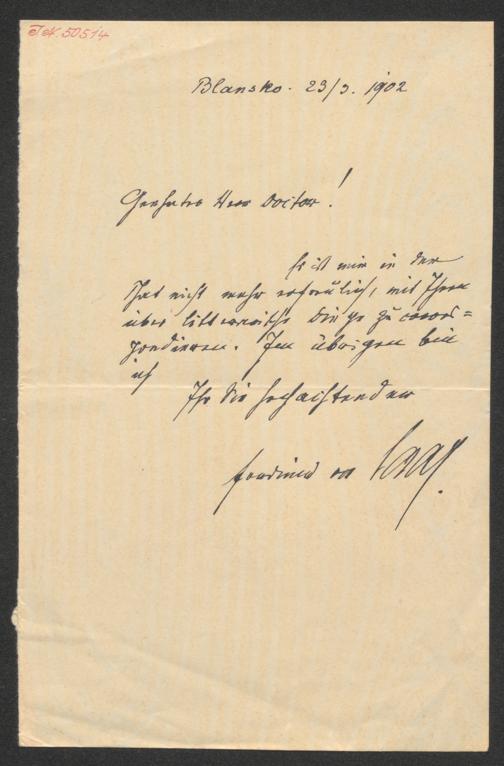 I.N. 50514
Blansko. 23/3. 1902
Geehrter Herr Doctor!
Es ist mir in der
That nicht mehr erfreulich, mit Ihnen
über litterarische Dinge zu corres=
pondieren. Im übrigen bin
ich
Ihr Sie hochachtender
Ferdinand von Saar.